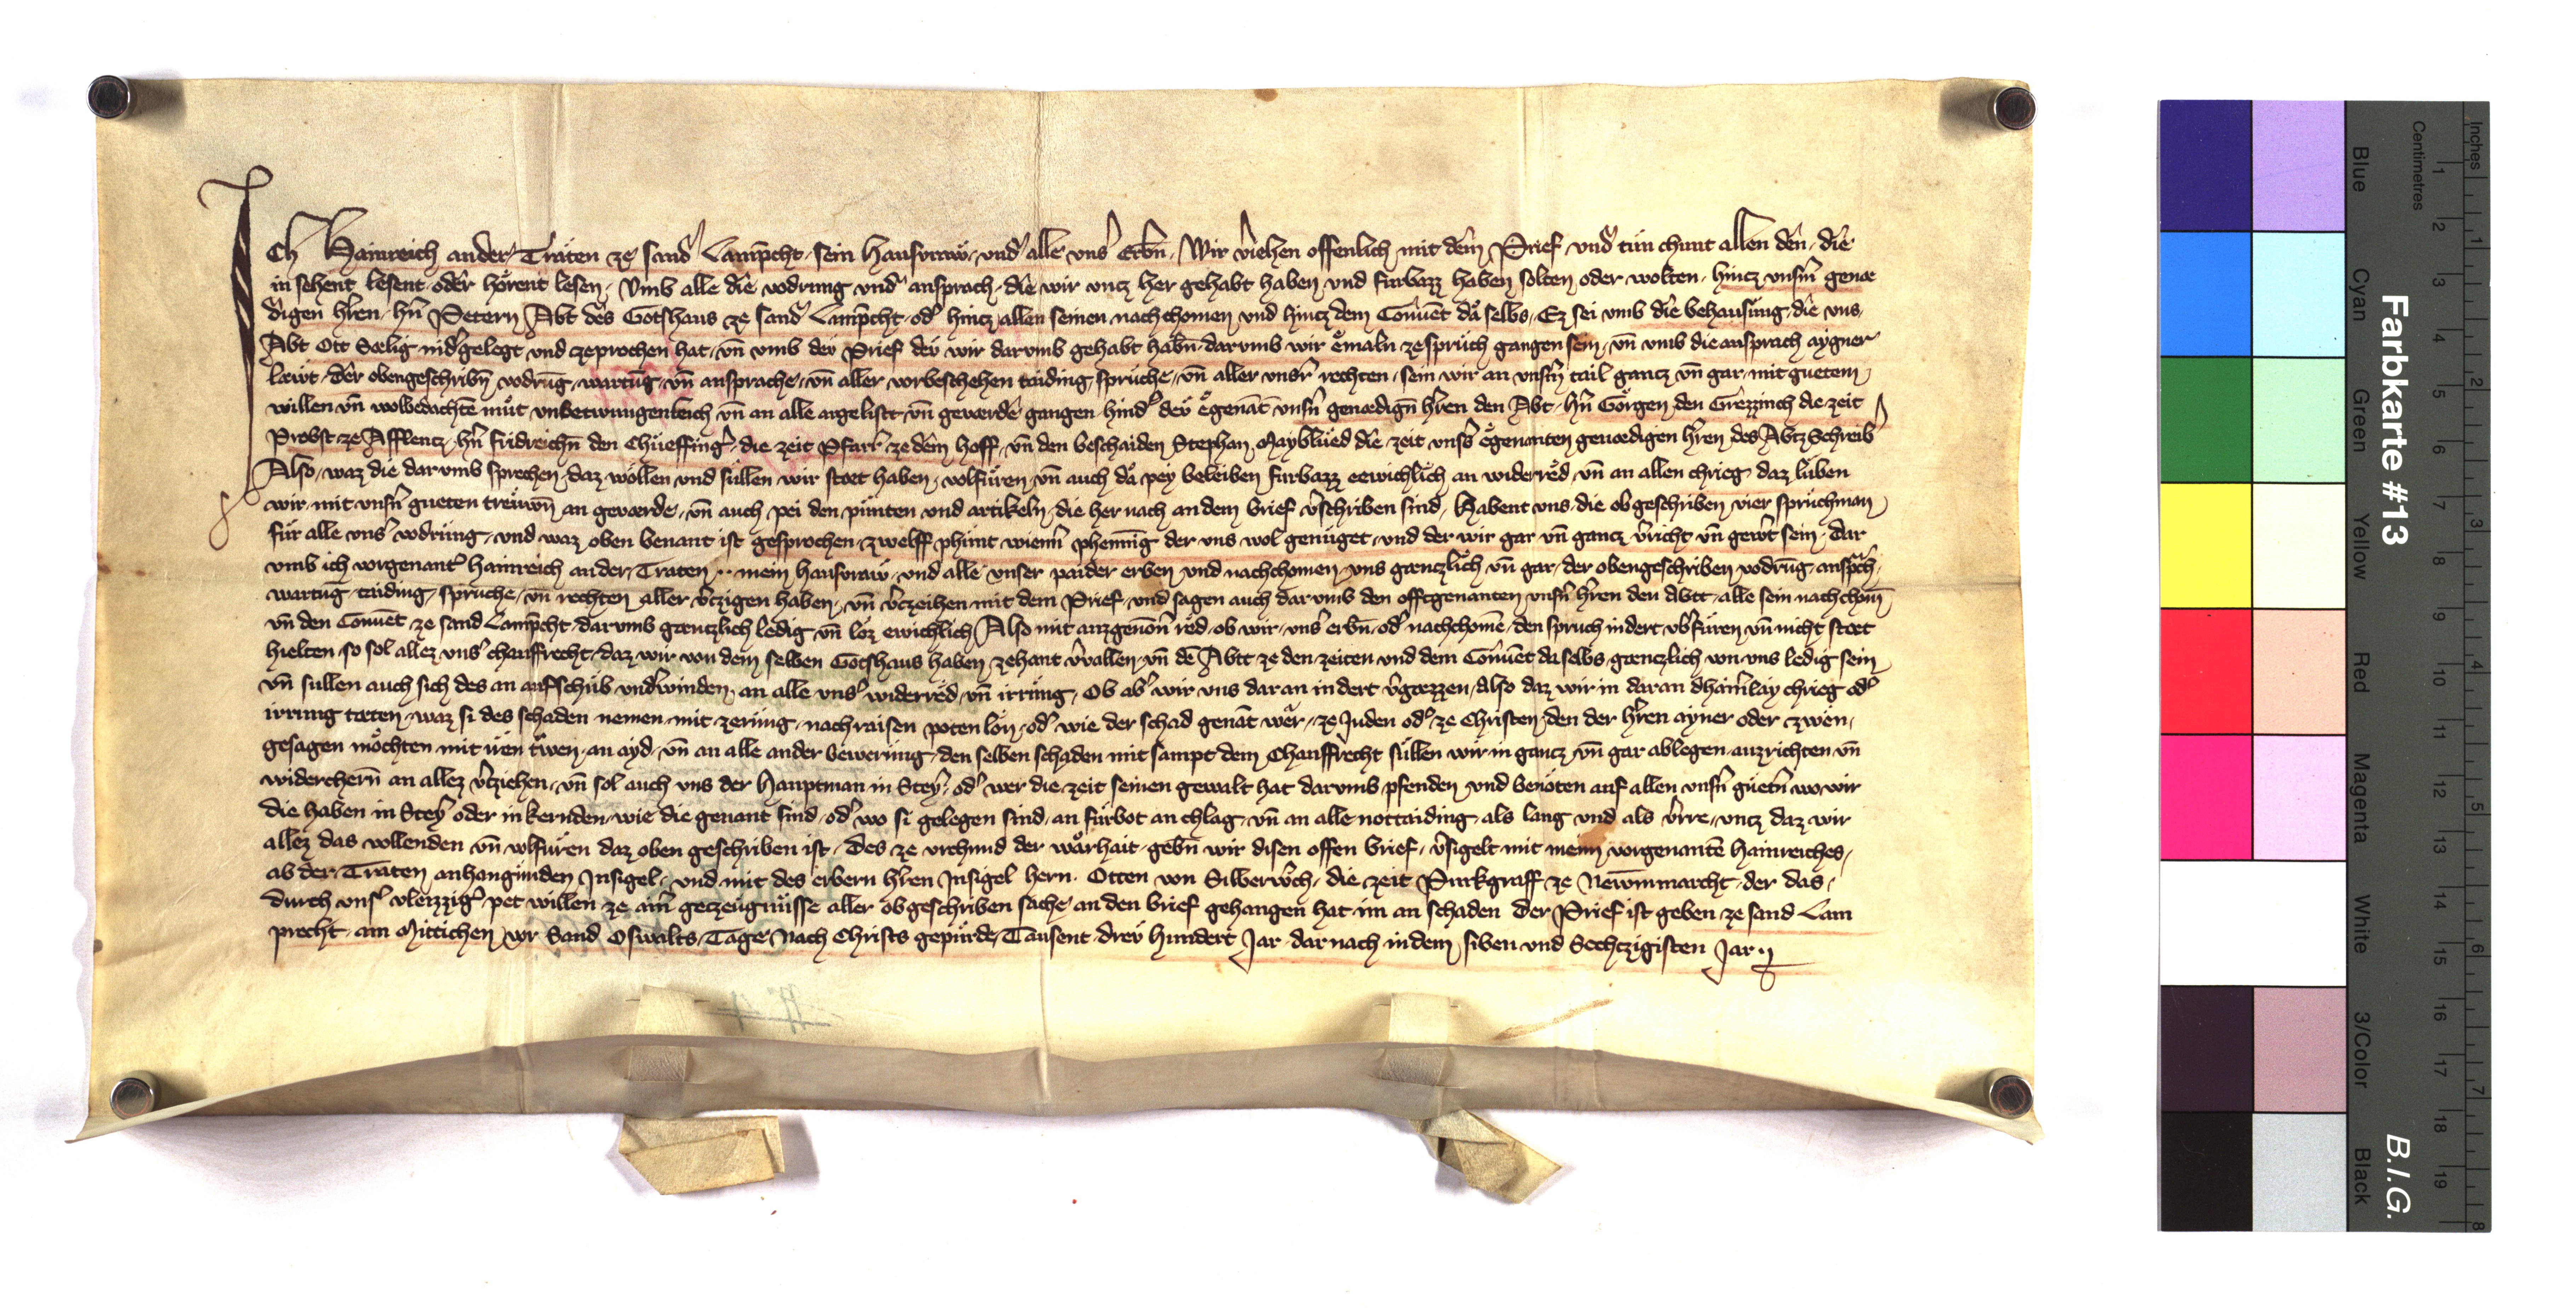 Ich Hainreich an der Traͤten ze sand Lamp̄cht, sein Hausvraw, und alle uns' Erbn̄, Wir v'iehen offenlich mit dem Prief, und tun chunt allen den, die
in sehent lesent oder hoͤrent lesen, Vmb alle die vodrung und ansprach, die wir vncz her gehabt haben und furbazz haben solten oder wolten, hincz unsern genæ
digen h'ren, h'n Petern Abt des Gotshaus ze sand Lamp̄cht, od' hincz allen seinen nachchomen und hincz dem Conuent da selbs, Ez sei umb die behausung, die uns,
Abt Ott Sælig nid'gelegt und czeprochen hat, vn̄ umb deu Prief deu wir darumb gehabt habn̄, darumb wir eͤmaln ze spruch gangen sein, vn̄ umb die ansprach aygner
læwt, der obengeschribn̄ vodrūg, wartūg, vn̄ ansprache, vn̄ aller vorbeschehen taiding, spruche, vn̄ aller unsr' rechten, sein wir an unserm tail gancz vn̄ gar, mit guetem
willen vn̄ wolbedachtē muͤt unbetwungenleich vn̄ an alle argelist vn̄ geværde gangen hind' deu eͤgenāt unsn' genædign̄ h'ren den Abt, h'n Goͤrgen den Grezzinch die zeit
Probst ze Afflencz, h'n Fridreichn̄ den Chueffing', die zeit Pfarr' ze dem Hoff, vn̄ den beschaiden Stephan Mayblued die zeit uns's eͤgenanten genædigen h'ren des Abtz Schreib'
Also, waz die darumb sprechen, daz woͤllen und suͤllen wir stæt haben, volfuͤren, vn̄ auch da pey beleiben furbazz eewichlich an widerred vn̄ an allen chrieg, daz luben
wir mit unsn' gueten treuwn̄ an geværde, vn̄ auch pei den punten und artikeln, die her nach an dem brief v'schriben sind, Habent uns die obgeschriben vier spruchman
fuͤr alle uns' vodrung, und waz oben benant ist gesprochen, zwelff phunt wienn' phenn̄ig der uns wol genuͤget, und der wir gar vn̄ gancz v'richt vn̄ gew't sein, Dar
umb ich vorgenant' Hainreich an der Traten, mein hausvraw, und alle unser paider erben und nachchomen, uns gænczlich vn̄ gar, der obengeschriben vodrūg, ansp̄ch,
wartūg, taiding, spruche, vn̄ rechten aller v'czigen haben, vn̄ v'czeihen mit dem Prief, und sagen auch darumb den offtgenanten unsn' h'ren den Abt, alle sein nachchom̄
vn̄ den Conuent ze sand Lamp̄cht, darumb gænczlich ledig vn̄ loz ewichlich, Also mit auzgenōn' red, ob wir, uns' erbn̄, od' nachchomē, den spruch indert ub'fuͤren vn̄ nicht stæt
hielten, so sol allez uns' chauffrecht, daz wir von dem selben Gotshaus haben, zehant v'vallen, vn̄ dē Abt ze den zeiten und dem Conuent da selbs, gænczlich von uns ledig sein
vn̄ sullen auch sich des an aufschub und'winden, an alle uns' widerred, vn̄ irrung, Ob ab' wir uns daran indert v'gæzzen, Also daz wir in daran dhainlay chrieg od'
irrung tæten, waz si des schaden nemen, mit zerung, nachraisen, poten lon, od' wie der schad genāt wær, ze Juden od' ze Christen, den der h'ren ayner oder zwen,
gesagen moͤchten mit iren triwen, an ayd, vn̄ an alle ander bewerung, den selben schaden mit sampt dem Chauffrecht suͤllen wir in gancz vn̄ gar ablegen auzrichten vn̄
widerchern̄ an allez v'cziehen, vn̄ sol auch uns der Hauptman in Stey', od' wer die zeit seinen gewalt hat darumb pfenden und benoͤten auf allen unsn' guetn̄ wo wir
die haben in Stey' oder in kernden, wie die genant sind, od' wo si gelegen sind, an fuͤrbot an chlag, vn̄ an alle nottaiding, als lang und als v'rre, uncz daz wir
allez das vollenden vn̄ volfuͤren daz oben geschriben ist, Des ze vrchund der warhait gebn̄ wir disen offen brief, v'sigelt mit mein vorgenantē Hainreiches,
ab der Traten anhangunden Insigel, und mit des erbern h'ren Insigel hern Otten von Silberw'ch, die zeit Purkgraff ze Newmmarcht, der das,
durch uns' vleizzig' pet willen ze ain' geczeugnuͤsse aller obgeschriben sache an den brief gehangen hat im an schaden Der Prief ist geben ze sand Lam
precht, am Mittichen vor Sand Oswalts, Tage Nach Christs gepurde, Tausent dreu hundert Jar, dar nach in dem siben und Sechczigisten Jar
Farbkarte #13
B.I.G.
Blue
Cyan
Green
Yellow
Red
Magenta
White
3/Color
Black
Centimetres
Inches
1 2 3 4 5 6 7 8 9 10 11 12 13 14 15 16 17 18 19
1 2 3 4 5 6 7 8